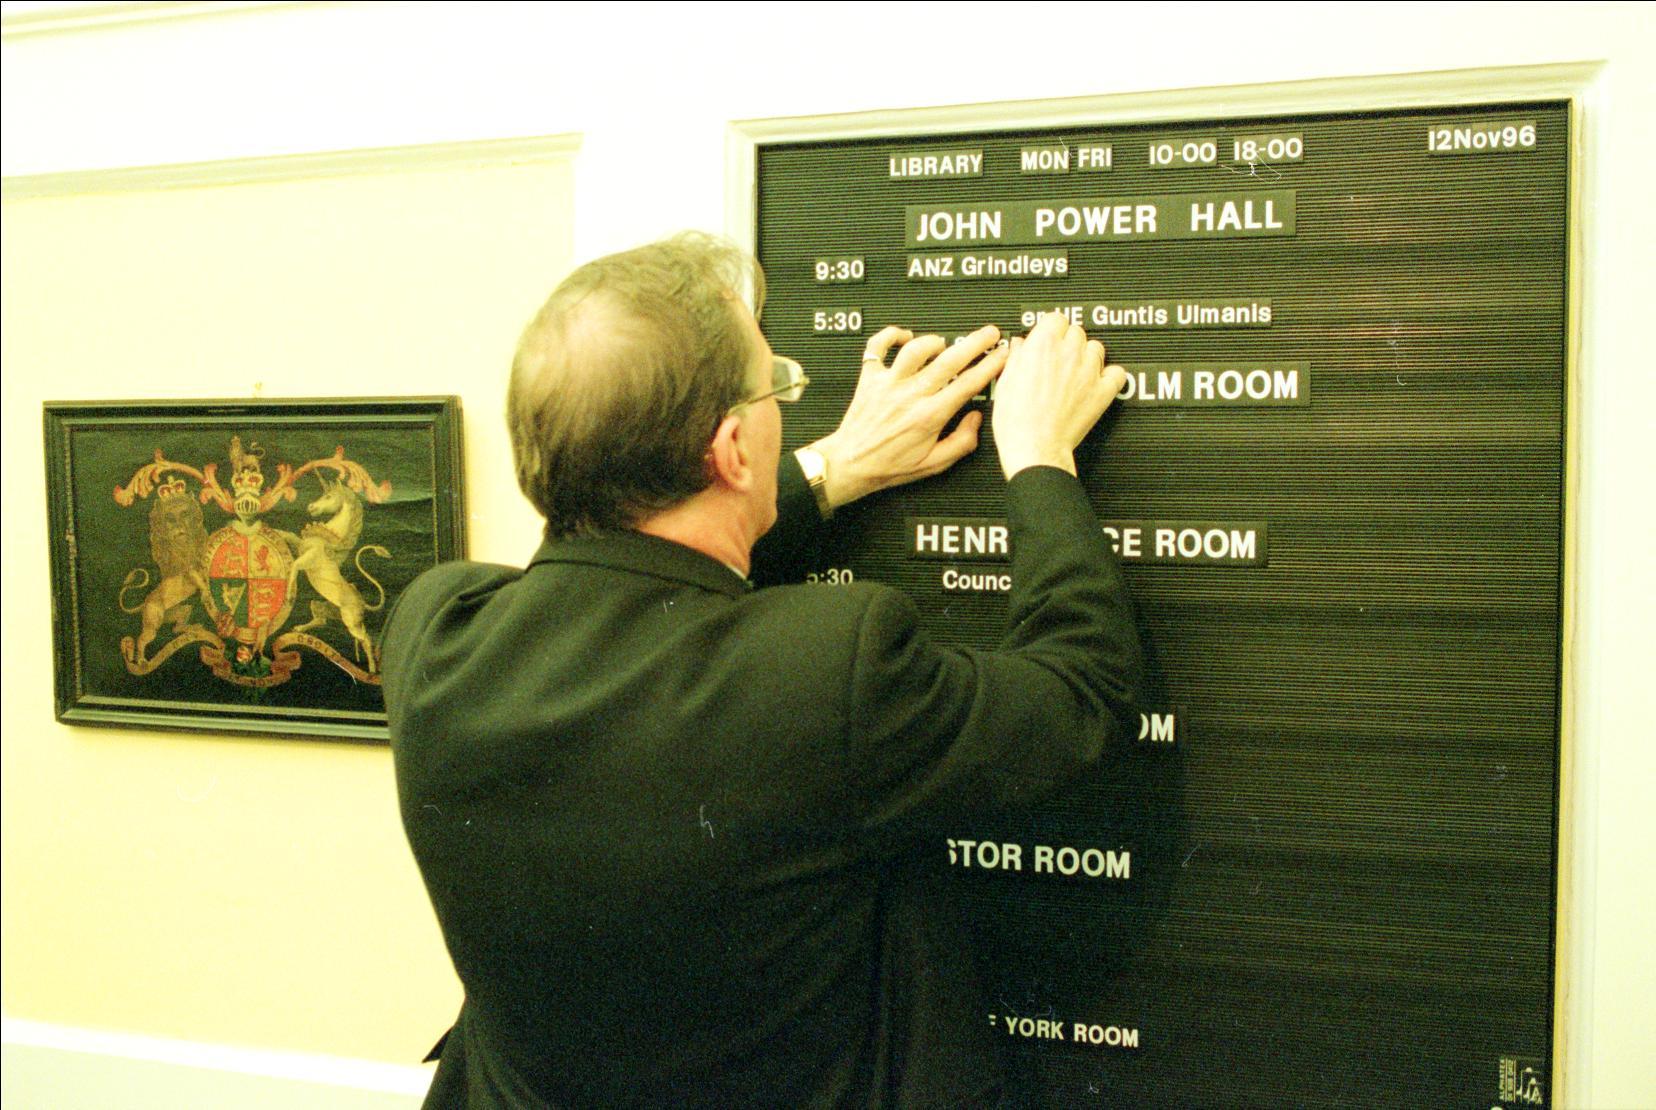 LIBRARY MON FRI 10-00 18-00 12Nov96
JOHN POWER HALL
9:30 ANZ Grindleys
5:30 HE Guntis Ulmanis
OLM ROOM
HENR CE ROOM
5:30 Counc
OM
STOR ROOM
YORK ROOM